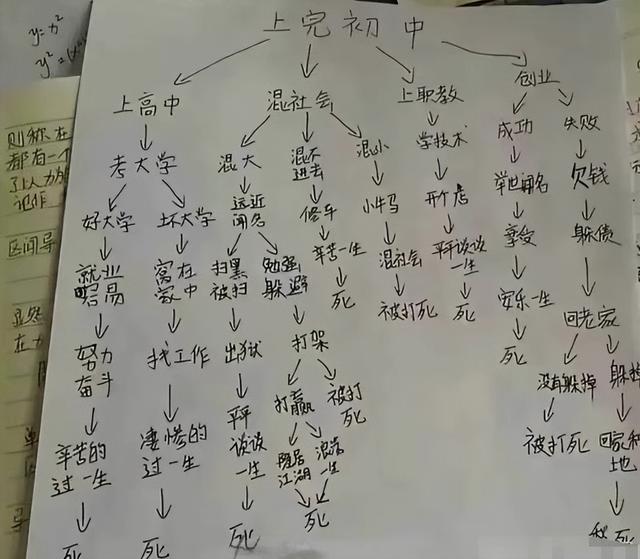 y=x²
y²=
则称在
都有一个
区间导
显然
在
上完初中
上高中
混社会
上职教
创业
考大学
混大
混不进去
混小
学技术
成功
失败
好大学
坏大学
远近闻名
修车
小牛马
开个店
举世闻名
欠钱
就业容易
窝在家中
扫黑被扫
勉强躲避
辛苦一生
混社会
平平谈谈一生
享受
躲债
努力奋斗
找工作
出狱
打架
死
被打死
死
安乐一生
回老家
辛苦的过一生
凄惨的过一生
平平谈谈一生
打赢
被打死
死
没有躲掉
躲掉
隐居江湖
流荡一生
被打死
回家种地
死
死
死
死
死